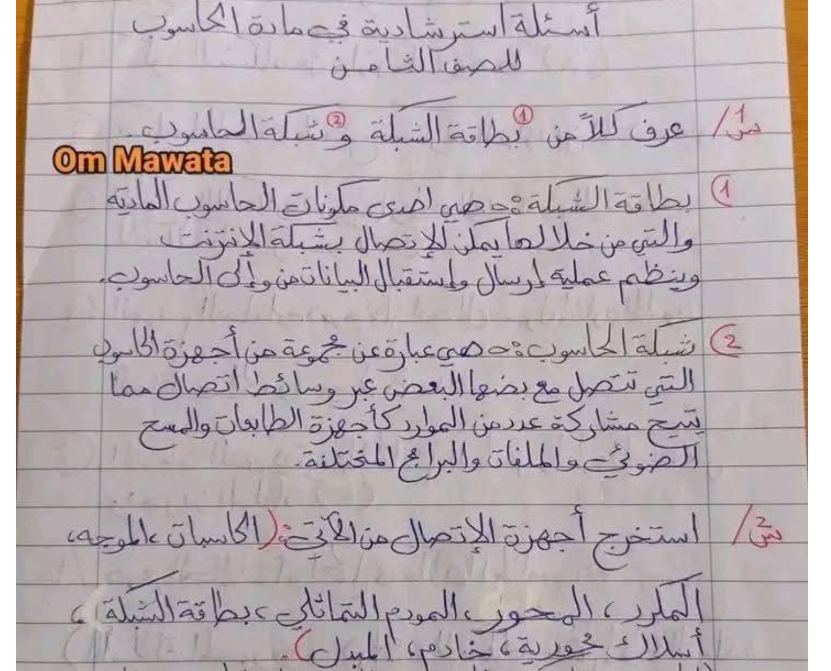 أسئلة استرشادية في مادة الحاسوب
للصف الثامن
س1/ عرف كلاً من ① بطاقة الشبكة و② شبكة الحاسوب.
Om Mawata
① بطاقة الشبكة :- هي احدى مكونات الحاسوب المادية
والتي من خلالها يمكن الإتصال بشبكة الإنترنت
وينظم عملية إرسال وإستقبال البيانات من وإلى الحاسوب.
② شبكة الحاسوب :- هي عبارة عن مجموعة من أجهزة الحاسوب
التي تتصل مع بضها البعض عبر وسائط اتصال مما
يتيح مشاركة عدد من الموارد كأجهزة الطابعات والمسح
الضوئي والملفات والبرامج المختلفة.
س2/ استخرج أجهزة الإتصال من الآتي: (الحاسبات، الموجه،
المكرر، المحور، المودم التماثلي، بطاقة الشبكة،
أسلاك محورية، خادم، المبدل).